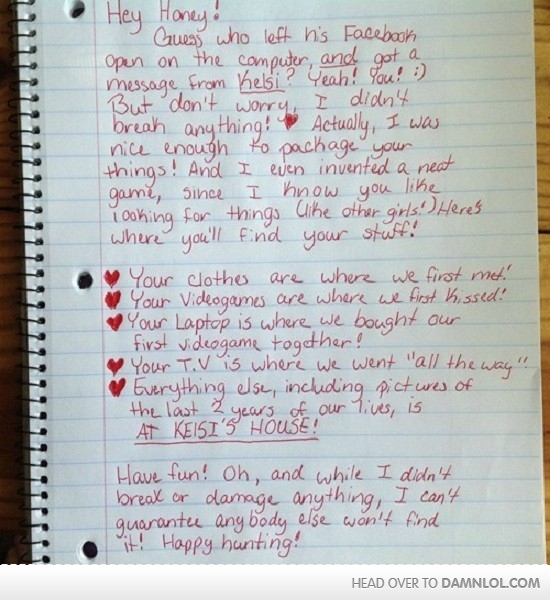 Hey Honey!
Guess who left his Facebook
open on the computer, and got a
message from Kelsi? Yeah! You! :)
But don't worry, I didn't
break anything! ♥ Actually, I was
nice enough to package your
things! And I even invented a neat
game, since I know you like
looking for things (like other girls!) Here's
where you'll find your stuff!
♥ Your clothes are where we first met!
♥ Your Videogames are where we first kissed!
♥ Your Laptop is where we bought our
first videogame together!
♥ Your T.V is where we went "all the way"!
♥ Everything else, including pictures of
the last 2 years of our lives, is
AT KElSI'S HOUSE!
Have fun! Oh, and while I didn't
break or damage anything, I can't
guarantee anybody else won't find
it! Happy hunting!
HEAD OVER TO DAMNLOL.COM